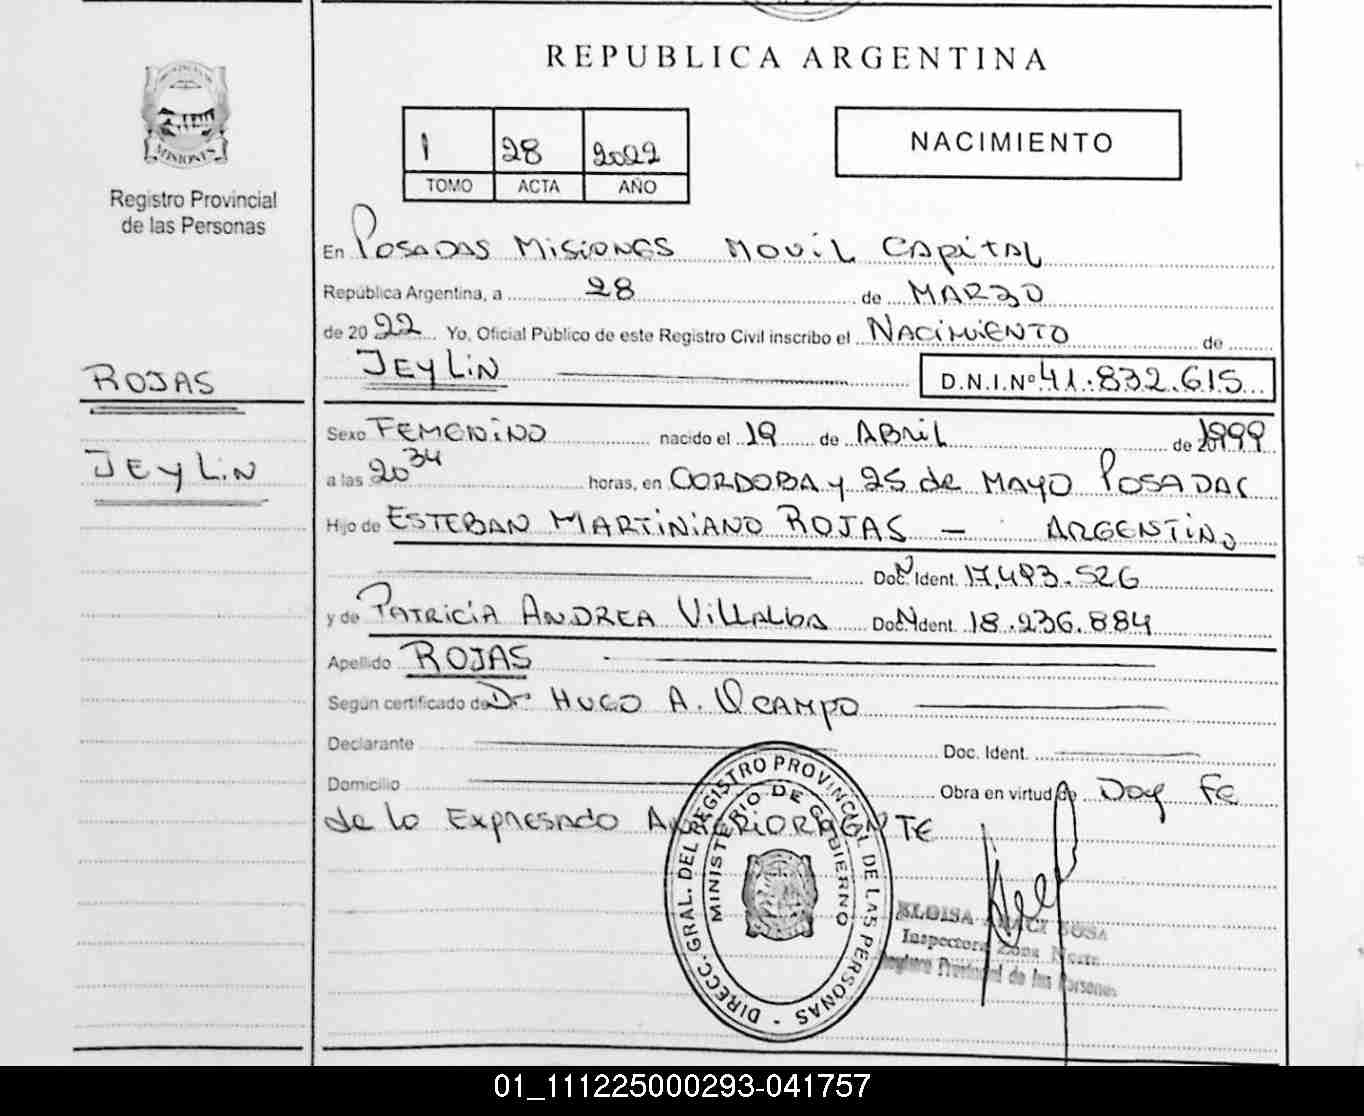 REPUBLICA ARGENTINA
MISIONES
Registro Provincial
de las Personas
1 28 2022
TOMO ACTA AÑO
NACIMIENTO
En POSADAS MISIONES MOVIL CAPITAL
República Argentina, a 28 de MARZO
de 2022 Yo, Oficial Público de este Registro Civil inscribo el NACIMIENTO de
JEYLIN D.N.I.Nº 41.832.615
ROJAS
JEYLIN
Sexo FEMENINO nacido el 19 de ABRIL de 1999
a las 20 34 horas, en CORDOBA y 25 de MAYO POSADAS
Hijo de ESTEBAN MARTINIANO ROJAS — ARGENTINO
Doc. Ident. 17.493.526
y de PATRICIA ANDREA VILLALBA Doc. Ident. 18.236.884
Apellido ROJAS
Según certificado de Dr HUGO A. OCAMPO
Declarante Doc. Ident.
Domicilio Obra en virtud de Doy FE
de lo EXPRESADO ANTERIORMENTE
DIRECC. GRAL. DEL REGISTRO PROVINCIAL DE LAS PERSONAS -
MINISTERIO DE GOBIERNO
ELOISA SOSA
Inspectora Zona Norte
Registro Provincial de las Personas
01_111225000293-041757